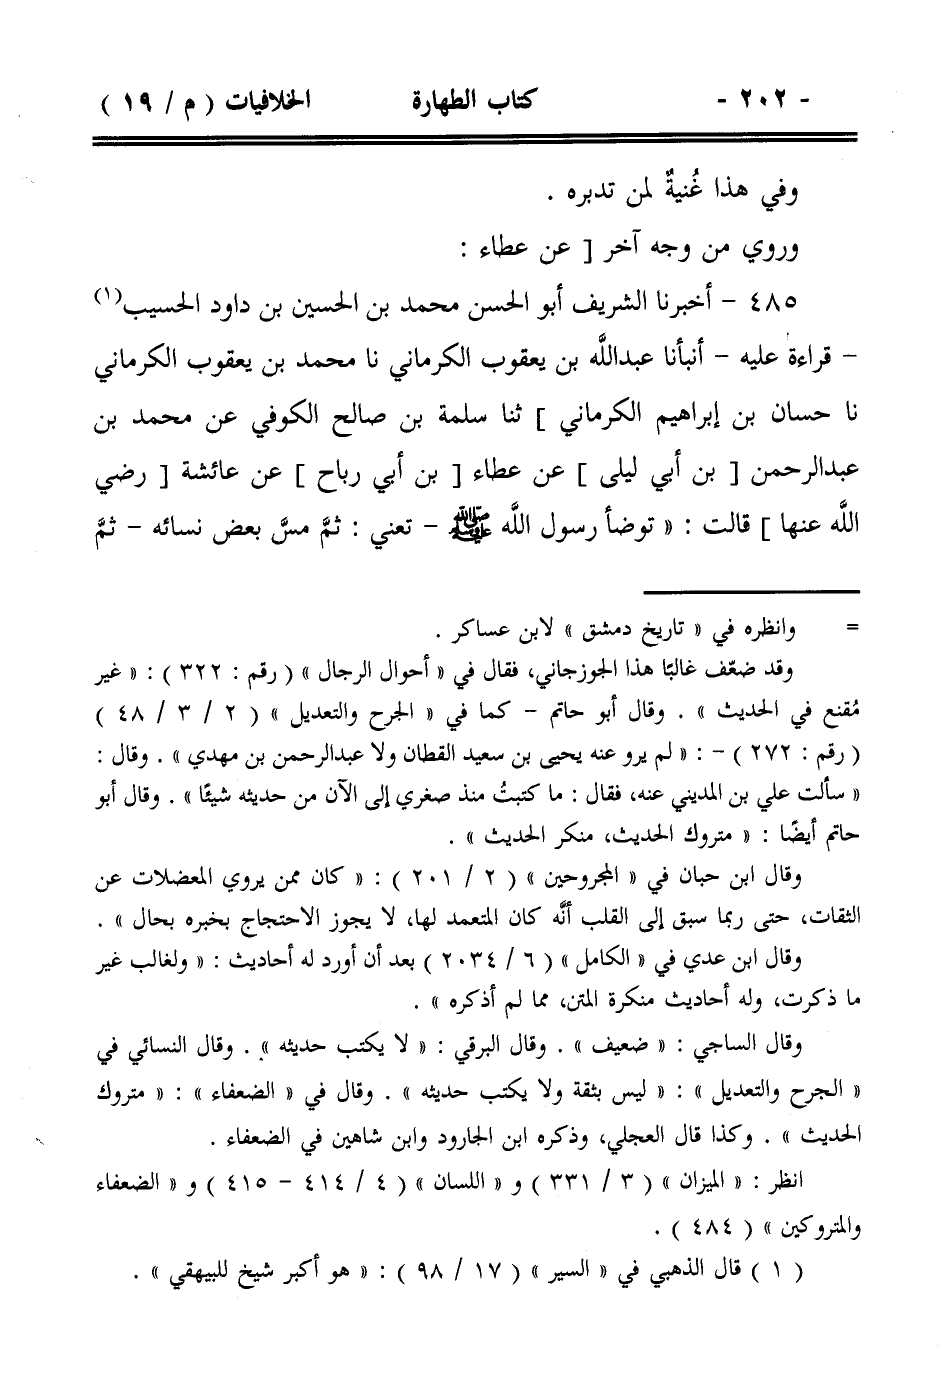 - ٢٠٢ - كتاب الطهارة الخلافيات ( م / ١٩ )
وفي هذا غُنيةٌ لمن تدبره .
وروي من وجه آخر [ عن عطاء :
٤٨٥ - أخبرنا الشريف أبو الحسن محمد بن الحسين بن داود الحسيب(١)
- قراءة عليه - أنبأنا عبدالله بن يعقوب الكرماني نا محمد بن يعقوب الكرماني
نا حسان بن إبراهيم الكرماني ] ثنا سلمة بن صالح الكوفي عن محمد بن
عبدالرحمن [ بن أبي ليلى ] عن عطاء [ بن أبي رباح ] عن عائشة [ رضي
الله عنها ] قالت : « توضأ رسول الله ﷺ - تعني : ثمَّ مسَّ بعض نسائه - ثمَّ
= وانظره في « تاريخ دمشق » لابن عساكر .
وقد ضعّف غالبًا هذا الجوزجاني، فقال في « أحوال الرجال » ( رقم : ٣٢٢ ) : « غير
مُقنع في الحديث » . وقال أبو حاتم - كما في « الجرح والتعديل » ( ٢ / ٣ / ٤٨ )
( رقم : ٢٧٢ ) - : « لم يرو عنه يحيى بن سعيد القطان ولا عبدالرحمن بن مهدي » . وقال :
« سألت علي بن المديني عنه، فقال : ما كتبتُ منذ صغري إلى الآن من حديثه شيئًا » . وقال أبو
حاتم أيضًا : « متروك الحديث، منكر الحديث » .
وقال ابن حبان في « المجروحين » ( ٢ / ٢٠١ ) : « كان ممن يروي المعضلات عن
الثقات، حتى ربما سبق إلى القلب أنَّه كان المتعمد لها، لا يجوز الاحتجاج بخبره بحال » .
وقال ابن عدي في « الكامل » ( ٦ / ٢٠٣٤ ) بعد أن أورد له أحاديث : « ولغالب غير
ما ذكرت، وله أحاديث منكرة المتن، مما لم أذكره » .
وقال الساجي : « ضعيف » . وقال البرقي : « لا يكتب حديثه » . وقال النسائي في
« الجرح والتعديل » : « ليس بثقة ولا يكتب حديثه » . وقال في « الضعفاء » : « متروك
الحديث » . وكذا قال العجلي، وذكره ابن الجارود وابن شاهين في الضعفاء .
انظر : « الميزان » ( ٣ / ٣٣١ ) و « اللسان » ( ٤ / ٤١٤ - ٤١٥ ) و « الضعفاء
والمتروكين » ( ٤٨٤ ) .
( ١ ) قال الذهبي في « السير » ( ١٧ / ٩٨ ) : « هو أكبر شيخ للبيهقي » .